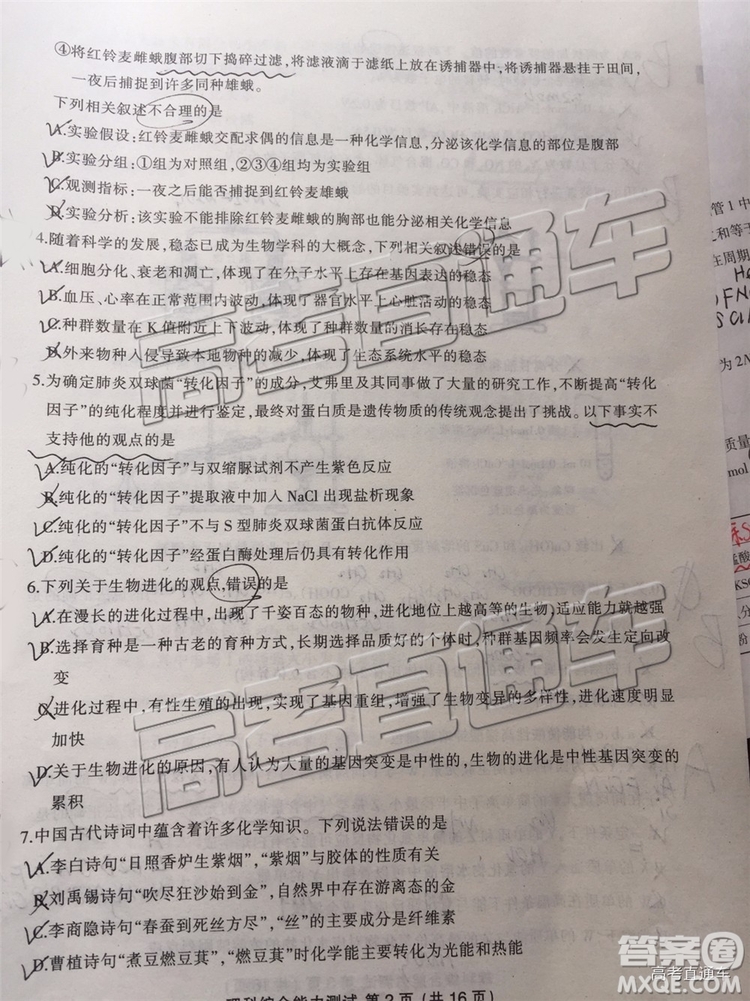 ④将红铃麦雌蛾腹部切下捣碎过滤,将滤液滴于滤纸上放在诱捕器中,将诱捕器悬挂于田间,
一夜后捕捉到许多同种雄蛾。
下列相关叙述不合理的是
A.实验假设:红铃麦雌蛾交配求偶的信息是一种化学信息,分泌该化学信息的部位是腹部
B.实验分组:①组为对照组,②③④组均为实验组
C.观测指标:一夜之后能否捕捉到红铃麦雄蛾
D.实验分析:该实验不能排除红铃麦雌蛾的胸部也能分泌相关化学信息
4.随着科学的发展,稳态已成为生物学科的大概念,下列相关叙述错误的是
A.细胞分化、衰老和凋亡,体现了在分子水平上存在基因表达的稳态
B.血压、心率在正常范围内波动,体现了器官水平上心脏活动的稳态
C.种群数量在K值附近上下波动,体现了种群数量的消长存在稳态
D.外来物种入侵导致本地物种的减少,体现了生态系统水平的稳态
5.为确定肺炎双球菌“转化因子”的成分,艾弗里及其同事做了大量的研究工作,不断提高“转化
因子”的纯化程度并进行鉴定,最终对蛋白质是遗传物质的传统观念提出了挑战。以下事实不
支持他的观点的是
A.纯化的“转化因子”与双缩脲试剂不产生紫色反应
B.纯化的“转化因子”提取液中加入NaCl出现盐析现象
C.纯化的“转化因子”不与S型肺炎双球菌蛋白抗体反应
D.纯化的“转化因子”经蛋白酶处理后仍具有转化作用
6.下列关于生物进化的观点,错误的是
A.在漫长的进化过程中,出现了千姿百态的物种,进化地位上越高等的生物,适应能力就越强
B.选择育种是一种古老的育种方式,长期选择品质好的个体时,种群基因频率会发生定向改
变
C.进化过程中,有性生殖的出现,实现了基因重组,增强了生物变异的多样性,进化速度明显
加快
D.关于生物进化的原因,有人认为大量的基因突变是中性的,生物的进化是中性基因突变的
累积
7.中国古代诗词中蕴含着许多化学知识。下列说法错误的是
A.李白诗句“日照香炉生紫烟”,“紫烟”与胶体的性质有关
B.刘禹锡诗句“吹尽狂沙始到金”,自然界中存在游离态的金
C.李商隐诗句“春蚕到死丝方尽”,“丝”的主要成分是纤维素
D.曹植诗句“煮豆燃豆萁”,“燃豆萁”时化学能主要转化为光能和热能
理科综合能力测试 第2页(共16页)
高考直通车
高考直通车
答案圈
高考直通车
管1中
之和等于
在周期
为2N
质量
mol